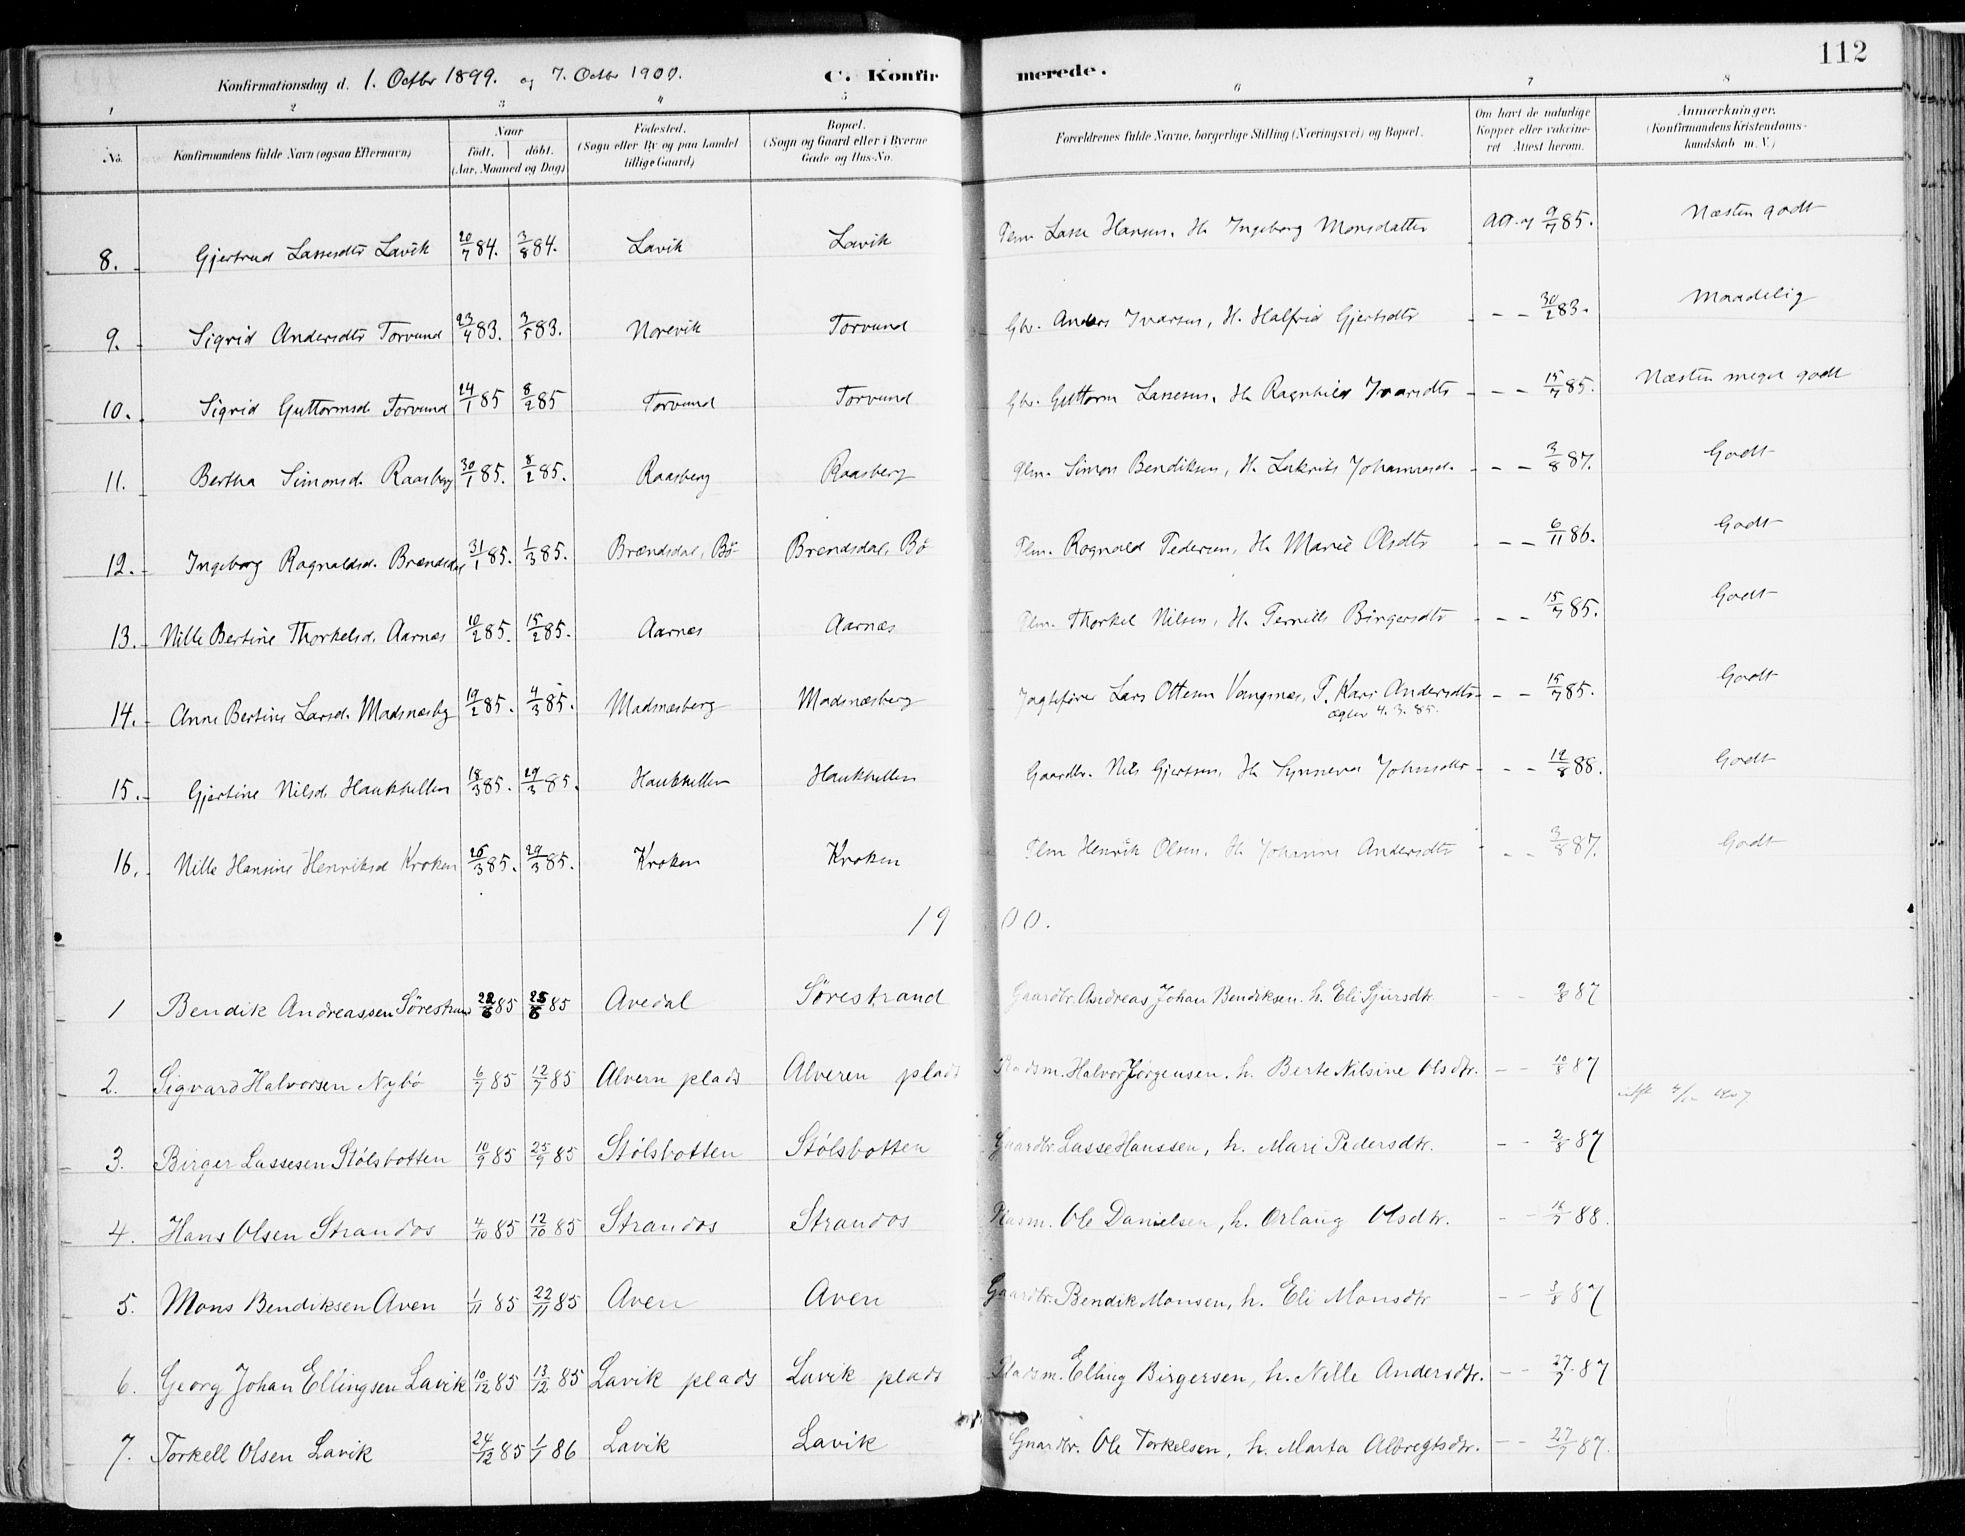 112
Konfirmationsdag d. 1. Octbr 1899. og 7. Octbr 1900. C. Konfirmerede.
1 2 3 4 5 6 7 8
No. Konfirmandens fulde Navn (ogsaa Efternavn) Naar født. døbt. (Aar, Maaned og Dag) Fødested. (Sogn eller By og paa Landet tillige Gaard) Bopæl. (Sogn og Gaard eller i Byerne Gade og Hus-No. Forældrenes fulde Navne, borgerlige Stilling (Næringsvei) og Bopæl. Om havt de naturlige Kopper eller vaccineret Attest herom. Anmærkninger. (Konfirmandens Kristendomskundskab m. V.)
8. Gjertrud Lassesdtr Lavik 20/7 84. 3/8 84. Lavik Lavik Plm. Lasse Hansen. H. Ingeborg Monsdatter Att. af 9/7 85. Næsten godt
9. Sigrid Andersdtr Torvund 23/4 83. 3/5 83. Norevik Torvund Gbr. Anders Ivarsen, H. Halfrid Gjertsdtr - - 30/2 83. Maadelig
10. Sigrid Guttormsd. Torvund 24/1 85 8/2 85 Torvund Torvund Gbr. Guttorm Lassesen, H. Ragnhild Ivarsdtr - - 15/7 85. Næsten meget godt
11. Bertha Simonsd. Raasberg 30/1 85. 8/2 85. Raasberg Raasberg Plm. Simon Bendiksen, H. Lukrits Johannesd. - - 3/8 87. Godt
12. Ingeborg Ragnaldsd. Brendsdal 31/1 85. 1/3 85. Brendsdal, Bø Brendsdal, Bø Plm. Ragnald Pedersen, H. Marie Olsdtr - - 6/11 86. Godt
13. Nille Bertine Thorkelsd. Aarnes 10/2 85. 15/2 85. Aarnes Aarnæs Plm. Thorkel Nilsen, H. Pernille Birgersdtr - - 15/7 85. Godt
14. Anne Bertine Larsd. Madsnæsbg 19/2 85. 4/3 85. Madsnæsberg Madsnæsberg Jagtefører Lars Ottesen Vangsnæs, P. Kari Andersdtr - - 15/7 85. Godt
ægter 4. 3. 85.
15. Gjertine Nilsd. Haukhellen 18/3 85. 29/3 85. Haukhellen Haukhellen Gaardbr. Nils Gjertsen, H. Synneva Johnsdtr - - 12/8 88. Godt
16. Nille Hansine Henriksd Kroken 26/3 85. 29/3 85. Kroken Kroken Plm Henrik Olsen, H. Johanne Andersdtr - - 3/8 87. Godt
1900.
1 Bendik Andreassen Sørestrand 22/6 85 25/6 85 Avedal Sørestrand Gaardbr. Andreas Johan Bendiksen. h. Eli Sjursdtr. - - 2/8 87
2. Sigvard Halvorsen Nybø 6/7 85 12/7 85 Alvern plads Alveren plads Pladsm. Halvor Jørgensen. h. Berte Nilsine Olsdtr. - - 10/8 87
3. Birger Lassesen Stølsbotten 10/9 85 25/9 85 Stølsbotten Stølsbotten Gaardbr. Lasse Hanssen, h. Mari Pedersdtr. - - 2/8 87
4. Hans Olsen Strandos 4/10 85 12/10 85 Strandos Strandos Plasm. Ole Danielsen, h. Orlaug Olsdtr. - - 16/7 88.
5. Mons Bendiksen Aven 1/11 85 22/11 85 Aven Aven Gaardbr. Bendik Monsen, h. Eli Monsdtr - - 3/8 87
6. Georg Johan Ellingsen Lavik 10/12 85 13/12 85 Lavik plads Lavik plads Pladsm. Elling Birgersen, h. Nille Andersdtr. - - 27/7 87
7. Torkell Olsen Lavik 24/12 85 1/1 86 Lavik Lavik Gaardbr. Ole Torkelsen, h. Marta Albregtsdtr. - - 27/7 87.